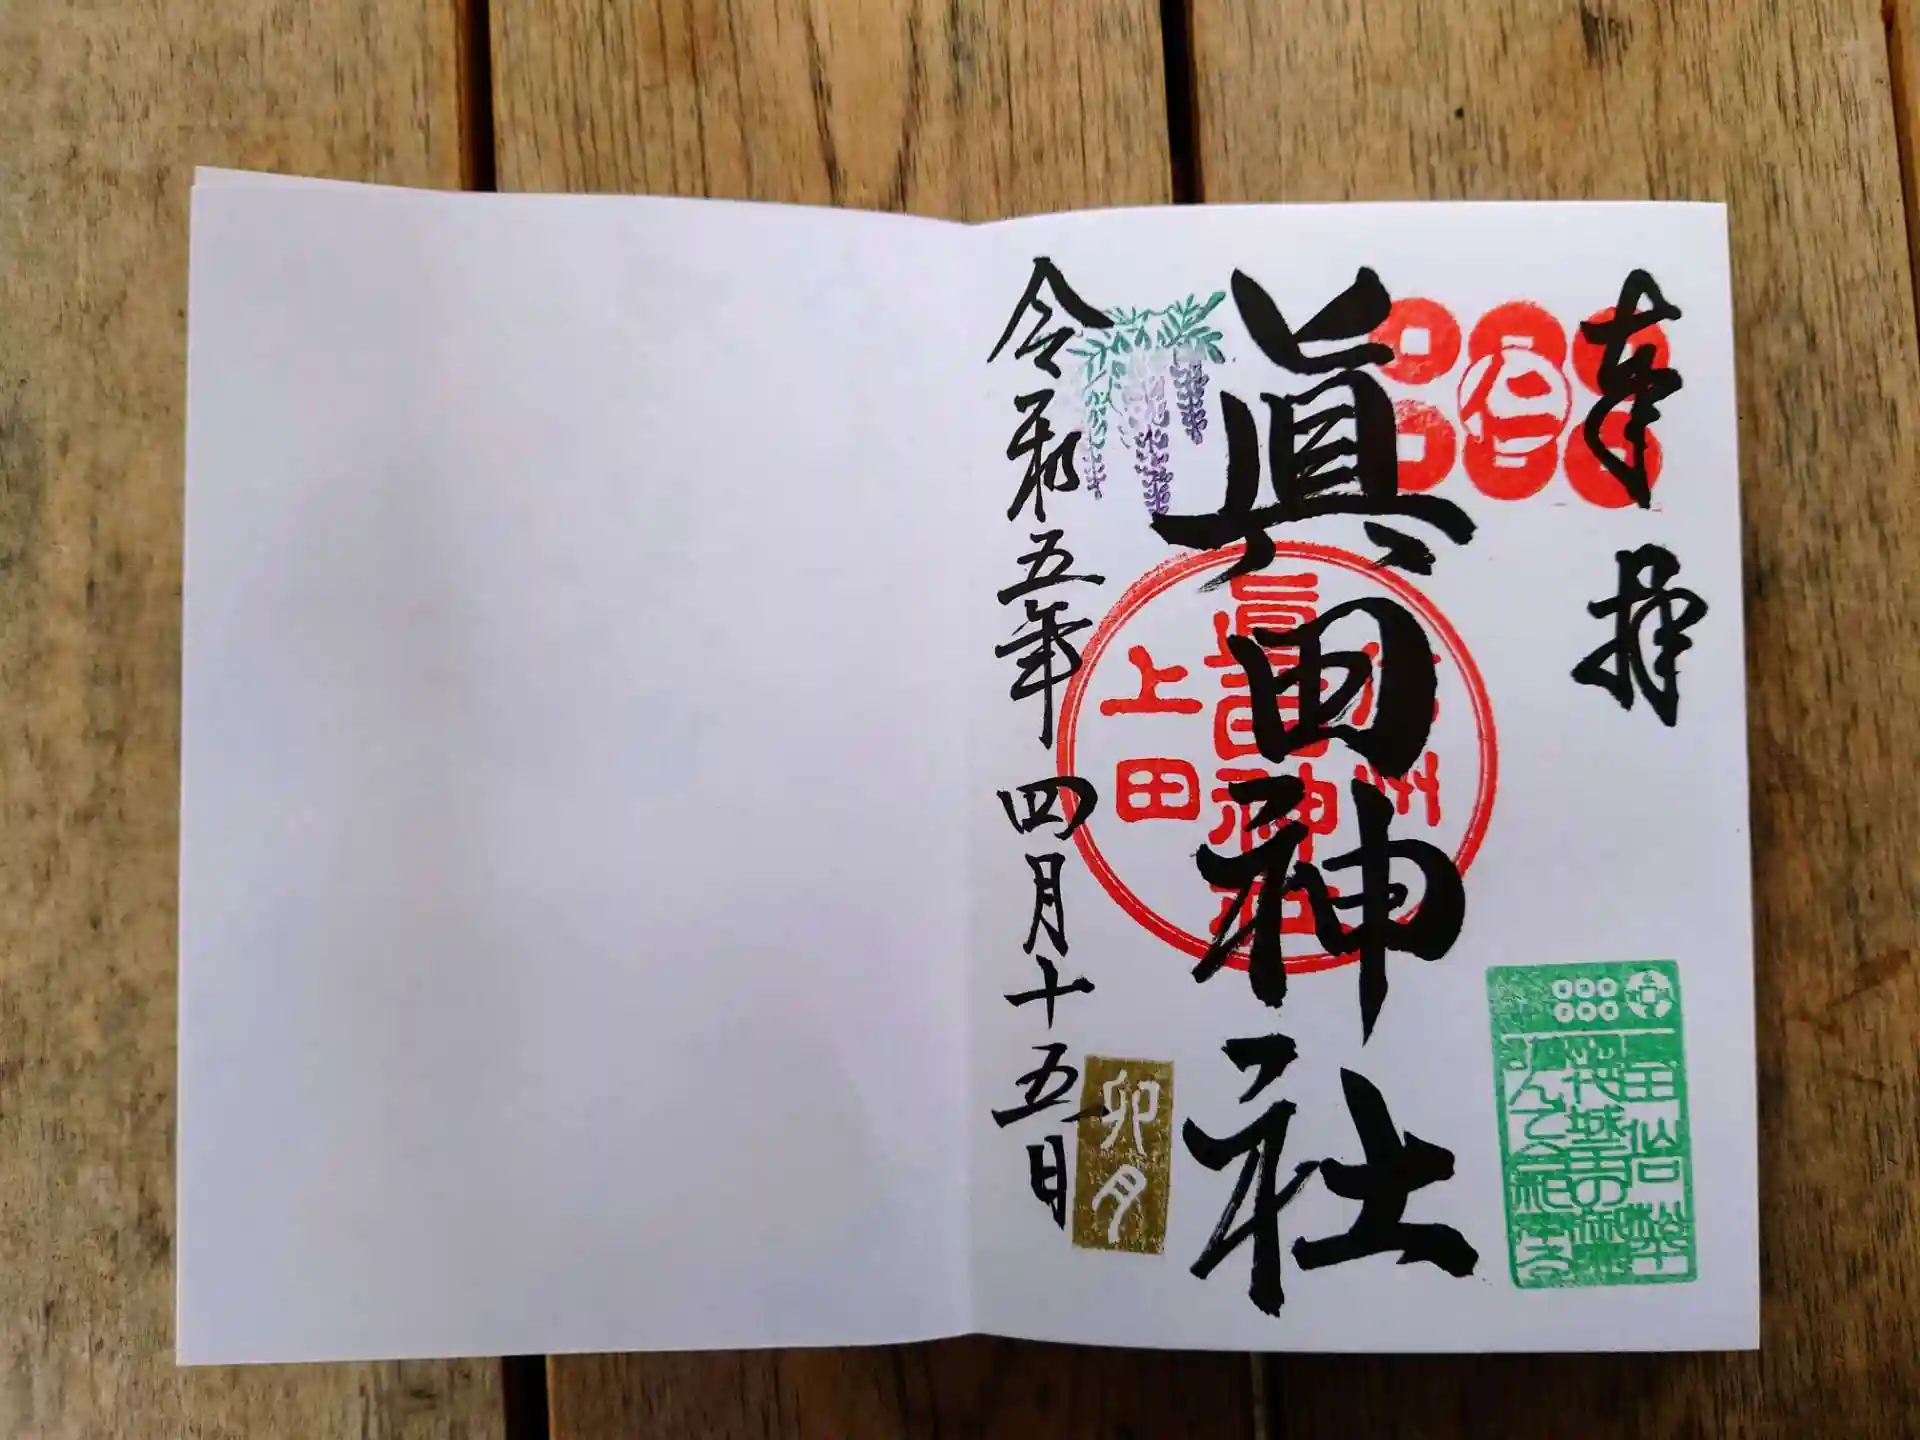 奉拝
仁
眞田神社
信州
眞田神社
上田
令和五年四月十五日
卯月